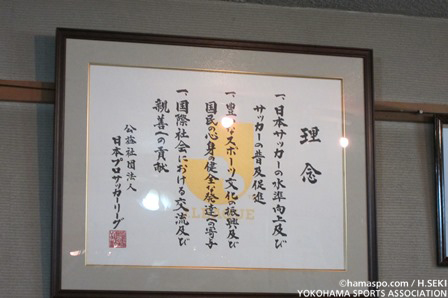 理念
一、日本サッカーの水準向上及び
サッカーの普及促進
一、豊かなスポーツ文化の振興及び
国民の心身の健全な発達への寄与
一、国際社会における交流及び
親善への貢献
公益社団法人
日本プロサッカーリーグ
J
LEAGUE
©hamaspo.com / H.SEKI
YOKOHAMA SPORTS ASSOCIATION